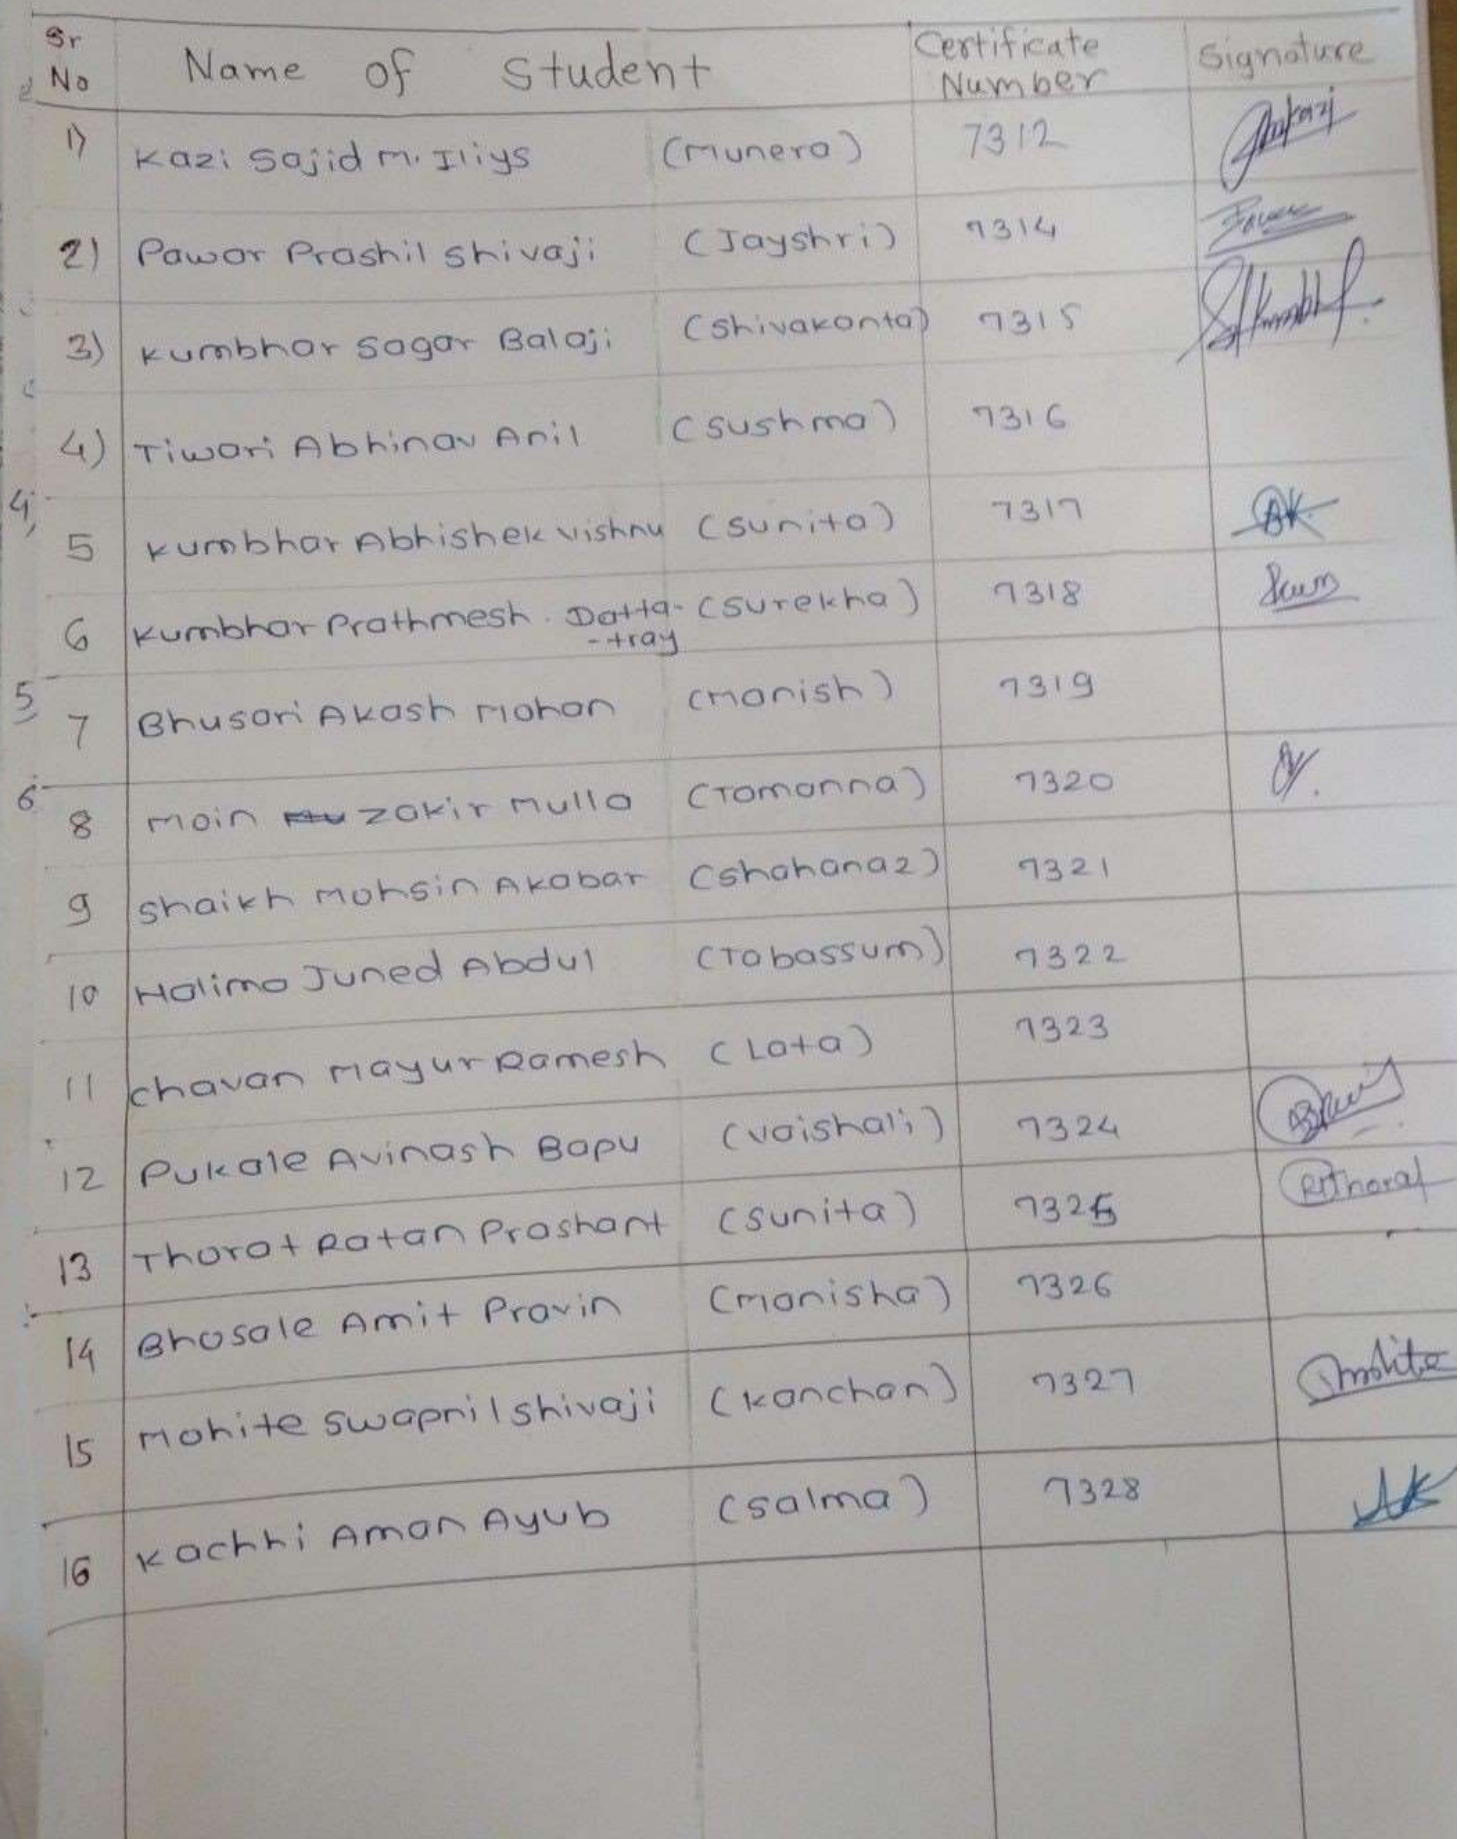 Sr No Name of Student Certificate Number Signature
1) Kazi Sajid M. Iliys (Munera) 7312
2) Pawar Prashil Shivaji (Jayshri) 7314
3) Kumbhar Sagar Balaji (Shivakanta) 7315
4) Tiwari Abhinav Anil (Sushma) 7316
4)
5 Kumbhar Abhishek Vishnu (Sunita) 7317 AK
6 Kumbhar Prathmesh. Datta- (Surekha) 7318
-tray
5
7 Bhusari Akash Mohan (Manish) 7319
6
8 Moin Zakir Mulla (Tamanna) 7320
9 Shaikh Mohsin Akabar (Shahanaz) 7321
10 Halima Juned Abdul (Tabassum) 7322
11 Chavan Mayur Ramesh (Lata) 7323
12 Pukale Avinash Bapu (Vaishali) 7324
13 Thorat Ratan Prashant (Sunita) 7325
14 Bhosale Amit Pravin (Manisha) 7326
15 Mohite Swapnil Shivaji (Kanchan) 7327
16 Kachhi Aman Ayub (Salma) 7328 AK